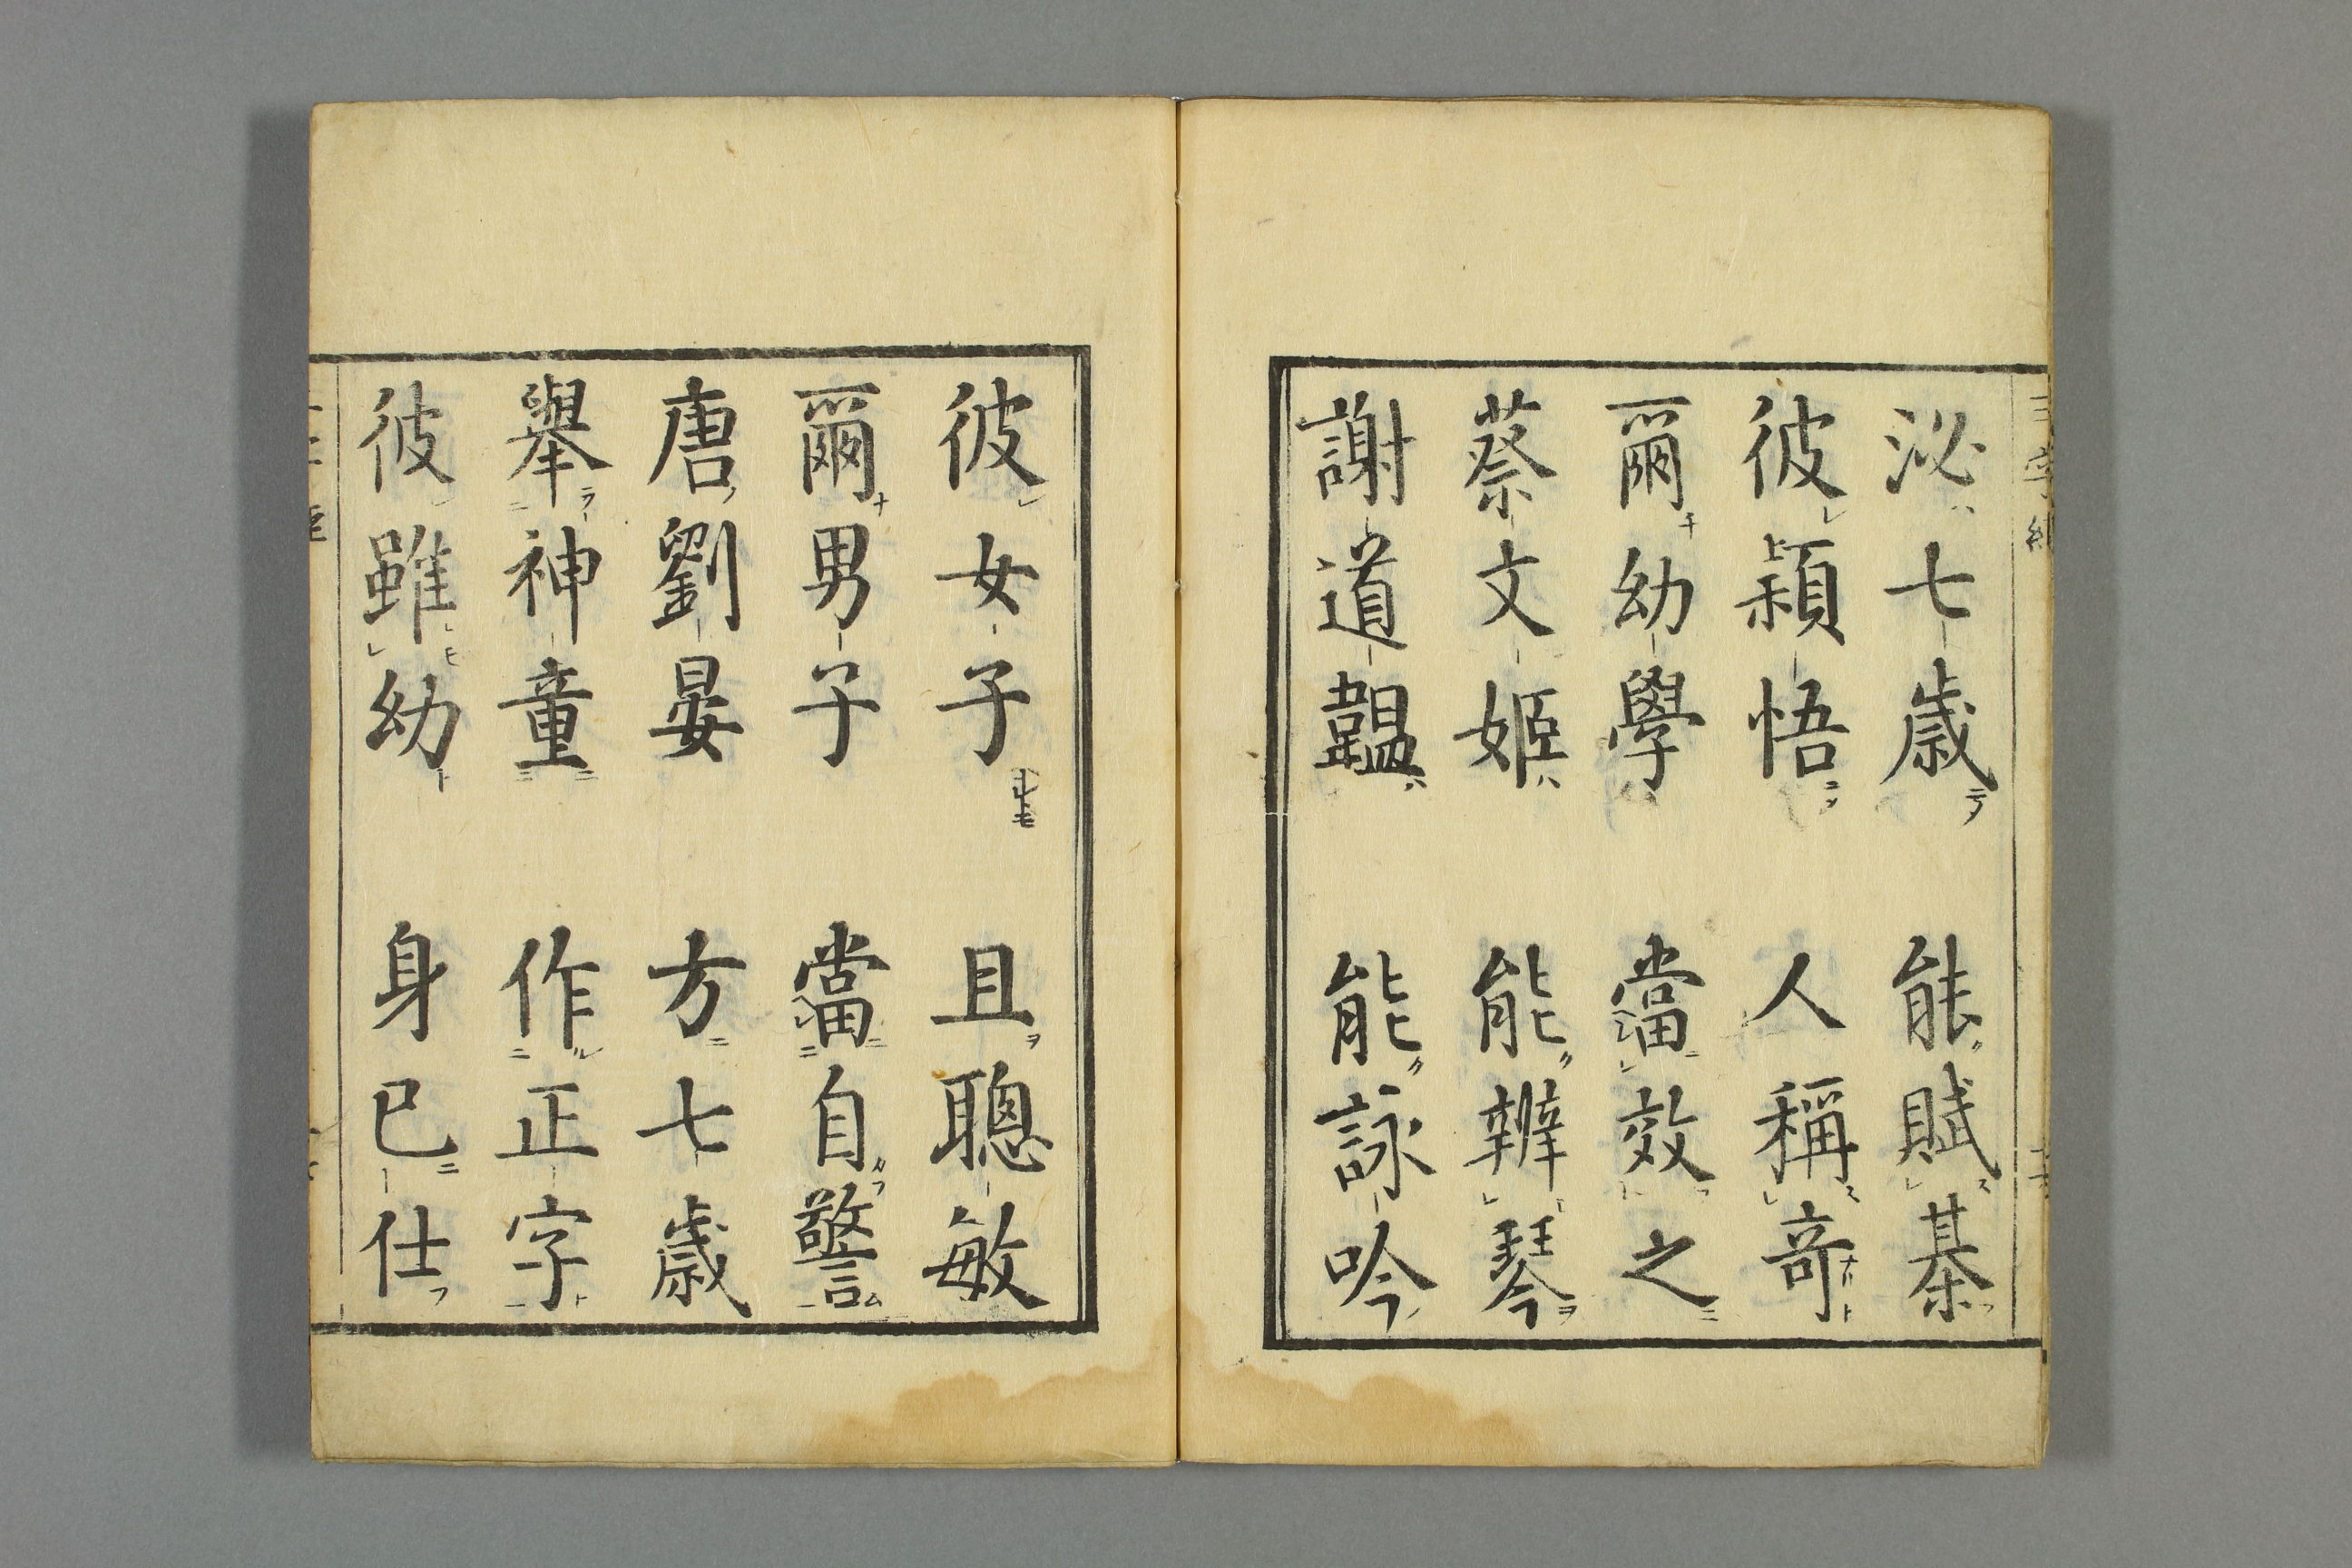 泌七歳　能賦棊
彼頴悟　人稱竒
爾幼學　當效之
蔡文姬　能辨琴
謝道韞　能詠吟
彼女子　且聰敏
爾男子　當自警
唐劉晏　方七歳
舉神童　作正字
彼雖幼　身已仕